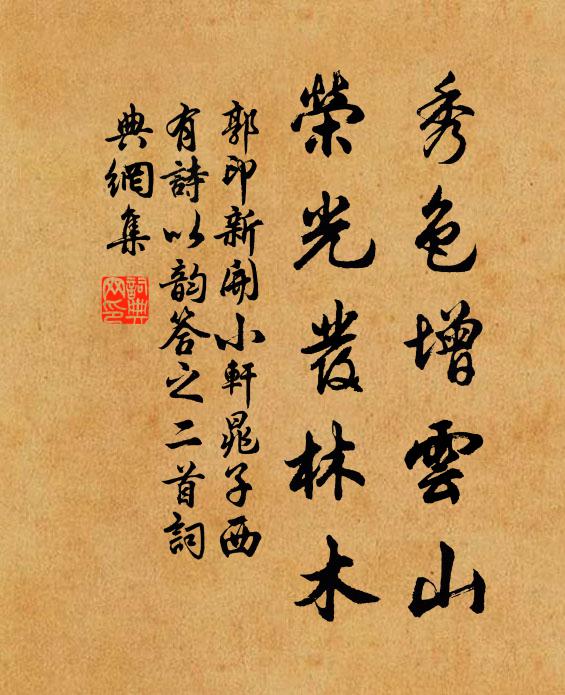 秀色增雲山
榮光發林木
郭印新開小軒晁子西
有詩以韵答之二首詞
典網集
詞典网印